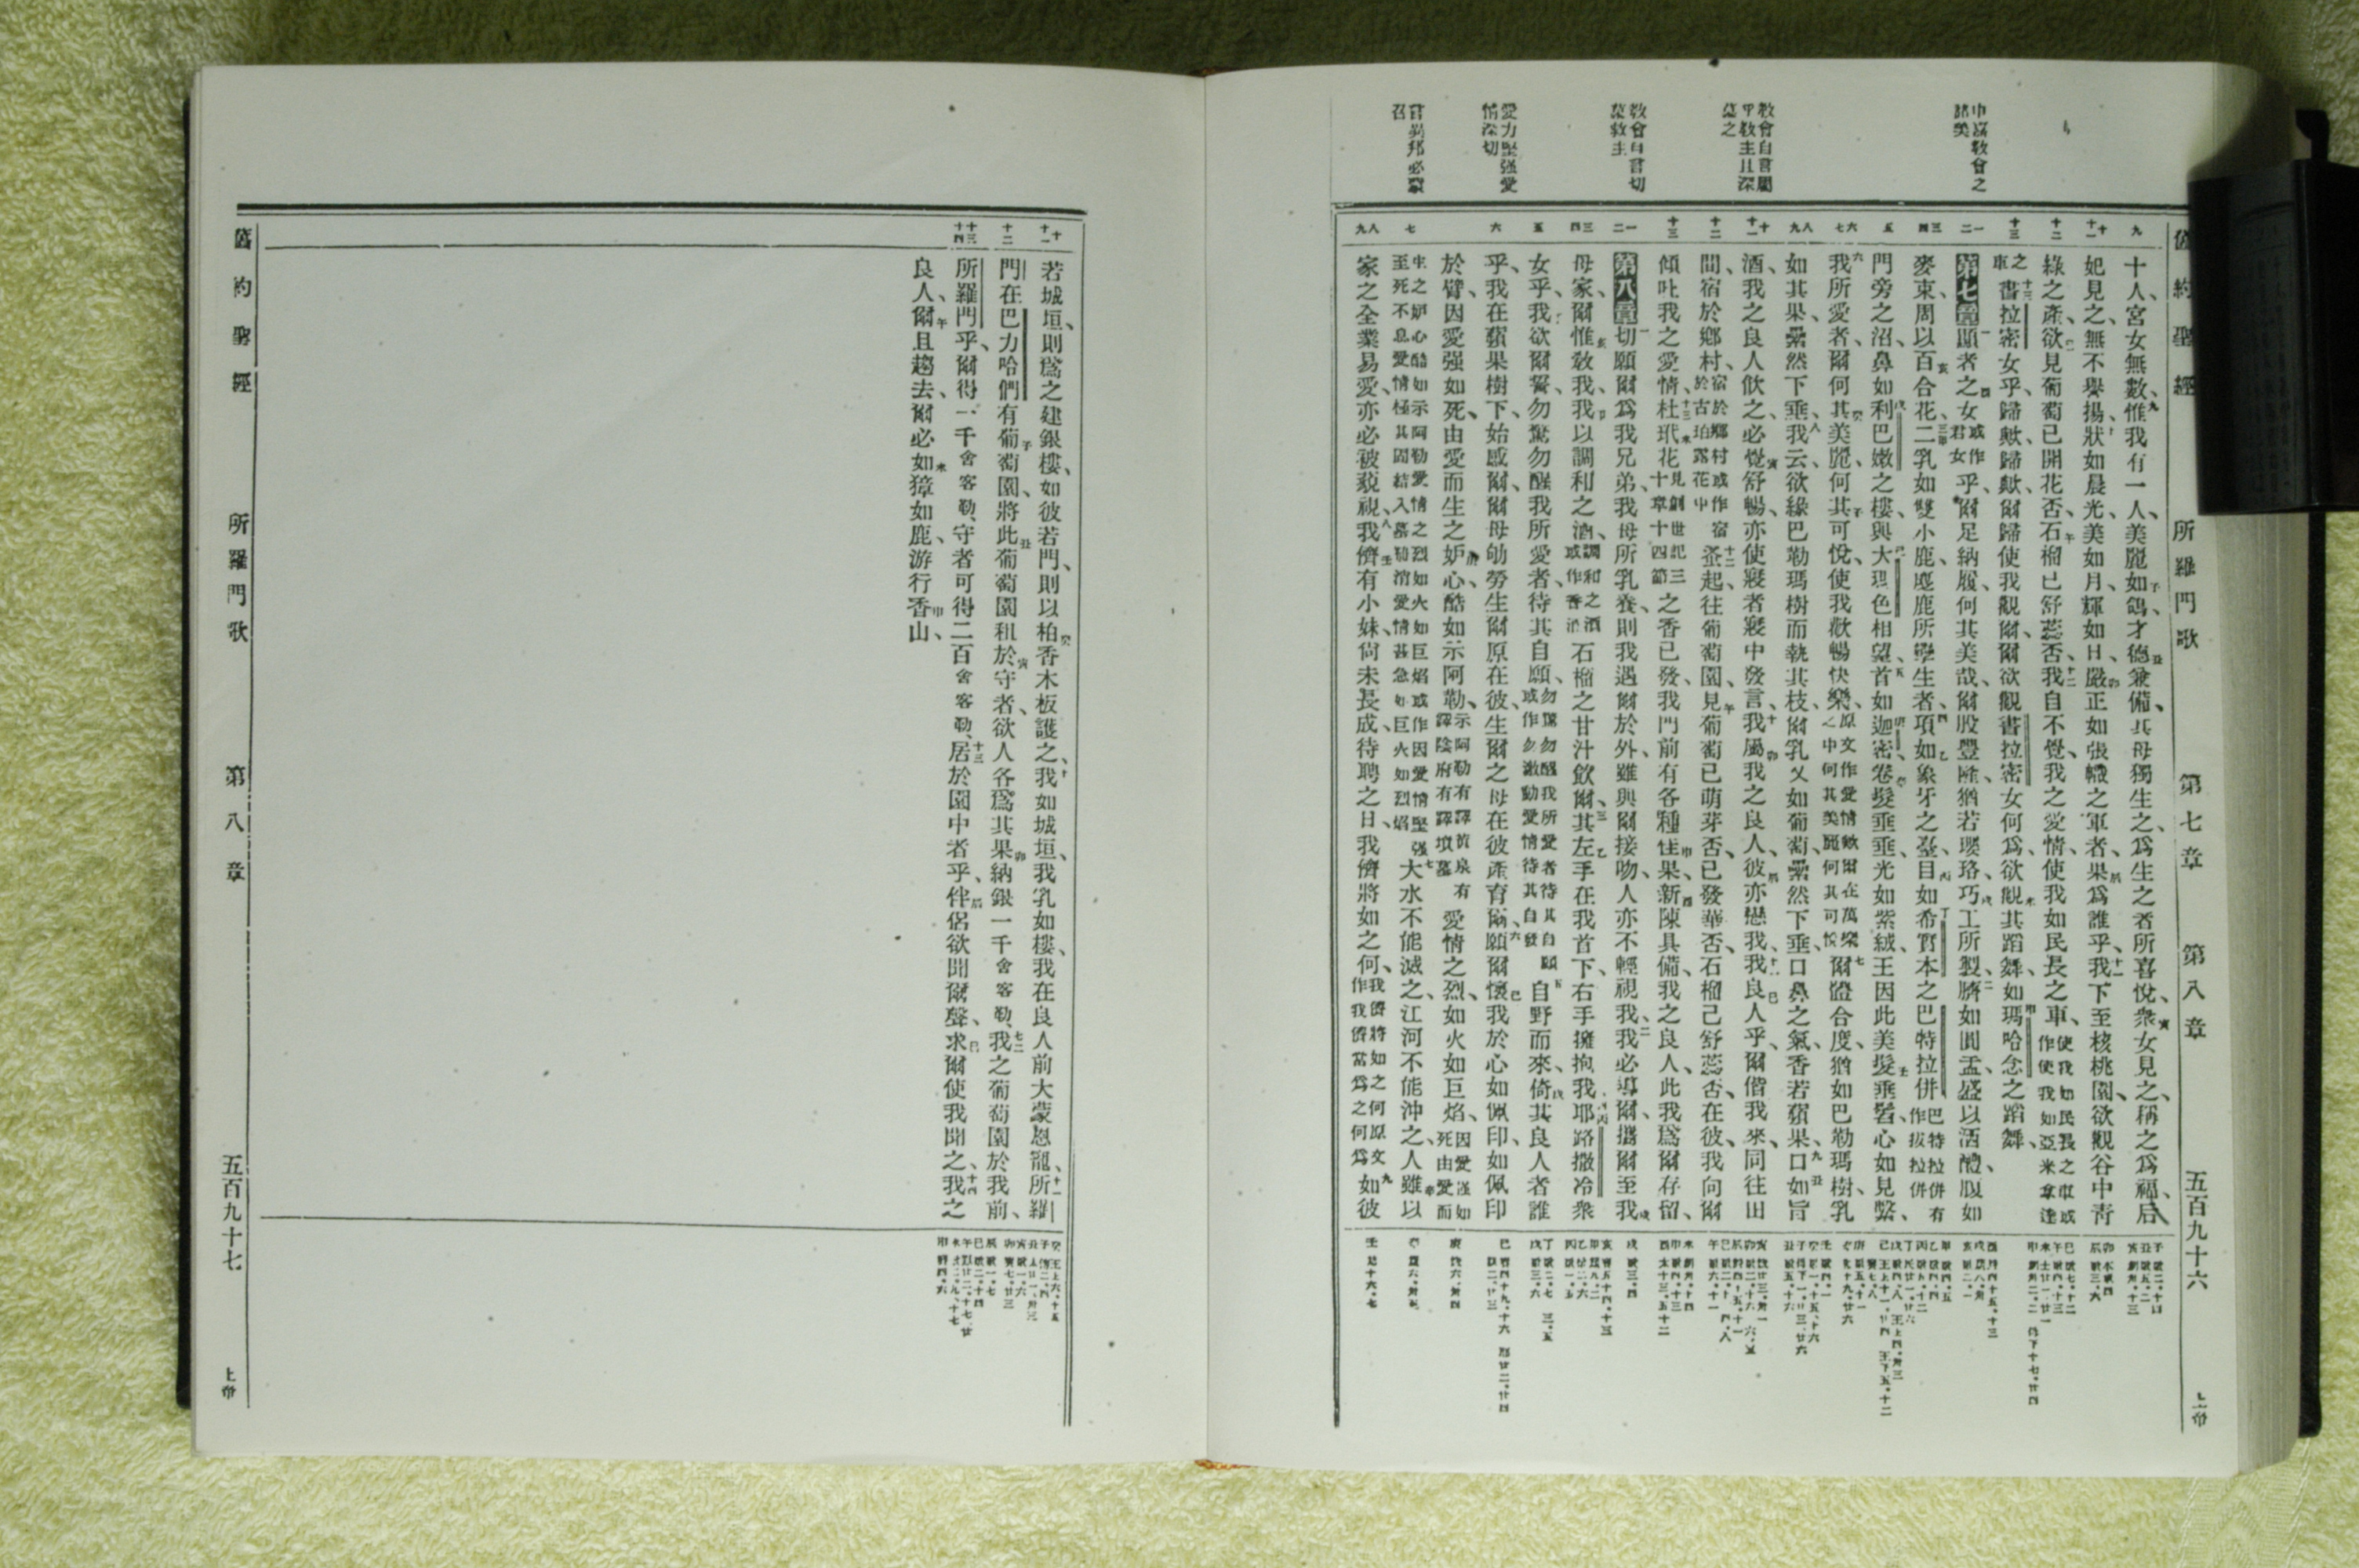 舊約聖經 所羅門歌 第七章 第八章 五百九十六 上帝
申嘉敎會之
教會自言屬
乎敎主且深
慕之
敎會自言切
慕敎主
愛力堅强愛
情深切
言異邦必蒙
召
九
十
十一
十二
十三
一
二
三
四
五
六
七
八
九
十
十一
十二
十三
一
二
三
四
五
六
七
八
九
十人、宮女無數、九惟我有一人、美麗如鴿、才德兼備、其母獨生之、爲生之者所喜悅、衆女見之、稱之爲福、后
妃見之、無不譽揚、十狀如晨光、美如月、輝如日、嚴正如張幟之軍者、果爲誰乎、十一我下至核桃園、欲觀谷中靑
綠之產、欲見葡萄已開花否、石榴已舒蕊否、十二我自不覺、我之愛情使我如民長之車、使我如民長之車或作使我如亞米拿達
之車十三書拉密女乎、歸歟、歸歟、爾歸使我觀爾、爾欲觀書拉密女何爲、欲觀其蹈舞、如瑪哈念之蹈舞、
第七章 一顯者之女或作君女乎、爾足納履、何其美哉、爾股豐隆、猶若瓔珞、巧工所製、二臍如圓盂、盛以酒醴、腹如
麥束、周以百合花、三二乳如雙小鹿、麀鹿所孿生者、四項如象牙之臺、目如希實本之巴特拉併巴特拉併有作拔拉併
門旁之沼、鼻如利巴嫩之樓、與大瑪色相望、五首如迦密、卷髮垂垂、光如紫絨、王因此美髮垂髫、心如見繫、
六我所愛者、爾何其美麗、何其可悅、使我歡暢快樂、原文作愛情歟爾在萬樂之中何其美麗何其可悅七爾體合度、猶如巴勒瑪樹、乳
如其果、纍然下垂、八我云、欲緣巴勒瑪樹而執其枝、爾乳又如葡萄纍然下垂、口鼻之氣、香若蘋果、九口如旨
酒、我之良人飮之、必覺舒暢、亦使寢者寢中發言、十我屬我之良人、彼亦戀我、十一我良人乎、爾偕我來、同往田
間、宿於鄕村、宿於鄕村或作宿於古珀露花中十二蚤起、往葡萄園、見葡萄已萌芽否、已發華否、石榴已舒蕊否、在彼、我向爾
傾吐我之愛情、十三杜玳花見創世記三十章十四節之香已發、我門前有各種佳果、新陳具備、我之良人、此我爲爾存留、
第八章 一切願爾爲我兄弟、我母所乳養、則我遇爾於外、雖與爾接吻、人亦不輕視我、二我必導爾、攜爾至我
母家、爾惟敎我、我以調和之酒、調和之酒或作香酒石榴之甘汁飮爾、三其左手在我首下、右手擁抱我、四耶路撒冷衆
女乎、我欲爾誓、勿驚勿醒我所愛者、待其自願、勿驚勿醒我所愛者待其自願或作勿激動愛情待其自發五自野而來、倚其良人者誰
乎、我在蘋果樹下、始感爾、爾母劬勞生爾、原在彼、生爾之母、在彼產育爾、六願爾懷我於心如佩印、如佩印
於臂、因愛强如死、由愛而生之妒心、酷如示阿勒、示阿勒有譯黃泉有譯陰府有譯墳墓愛情之烈、如火如巨焰、因愛强如死由愛而
生之妒心酷如示阿勒愛情之烈如火如巨焰或作因愛情堅强至死不息愛情極其固結入墓勒消愛情甚急如巨火如烈焰七大水不能滅之、江河不能沖之、人雖以
家之全業易愛、亦必被藐視、八我儕有小妹、尙未長成、待聘之日、我儕將如之何、我儕將如之何原文作我儕當爲之何爲九如彼
舊約聖經 所羅門歌 第八章 五百九十七 上帝
十
十一
十二
十三
十四
若城垣、則爲之建銀樓、如彼若門、則以柏香木板護之、十我如城垣、我乳如樓、我在良人前大蒙恩寵、十一所羅
門在巴力哈們有葡萄園、將此葡萄園租於守者、欲人各爲其果納銀一千舍客勒、十二我之葡萄園於我前、
所羅門乎、爾得一千舍客勒、守者可得二百舍客勒、十三居於園中者乎、伴侶欲聞爾聲、求爾使我聞之、十四我之
良人、爾且趨去、爾必如獐如鹿、游行香山、